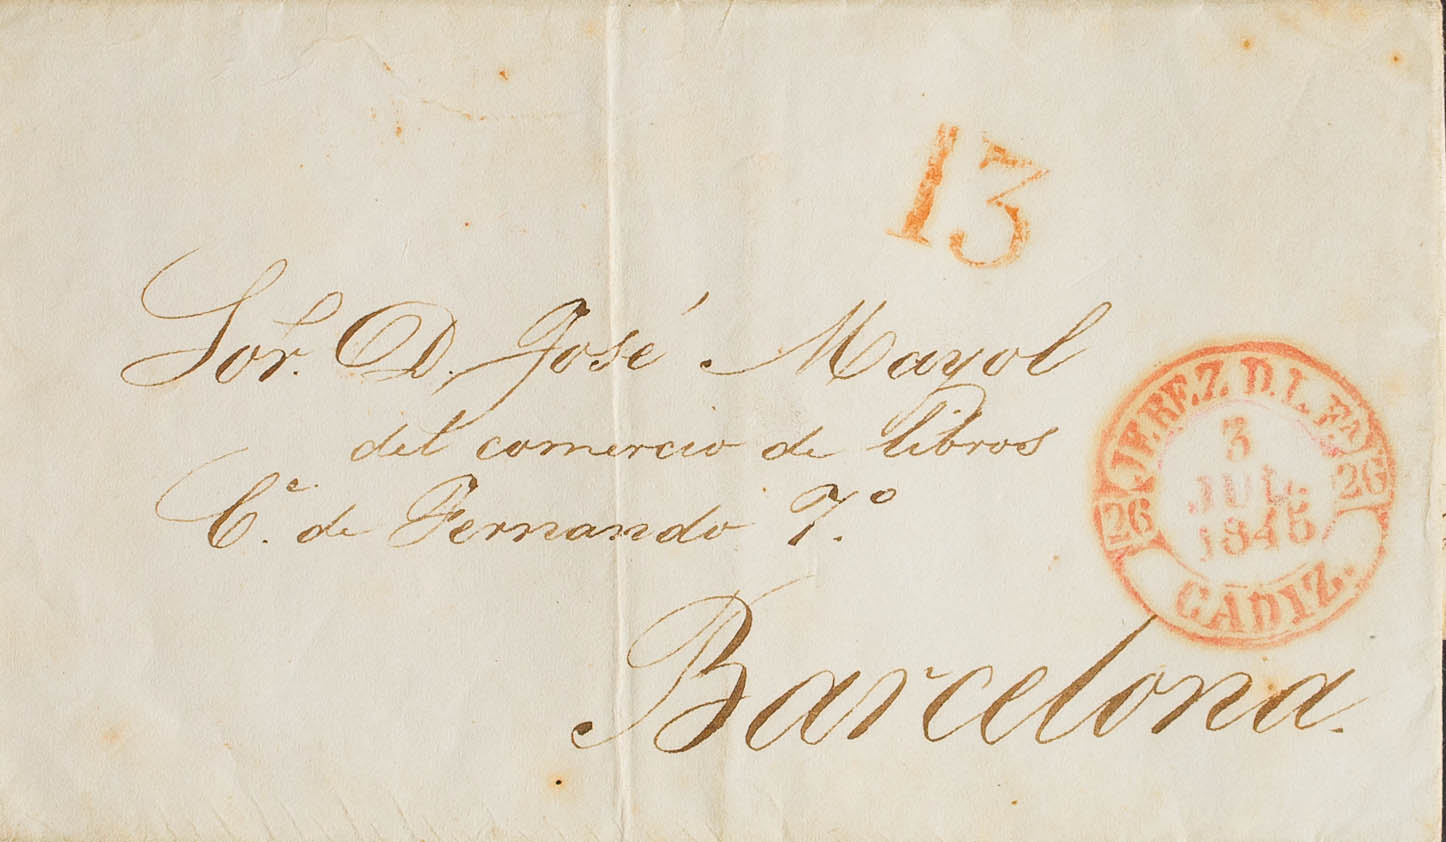 13
Sor. D. José Mayol
del comercio de libros
C.e de Fernando 7.o
Barcelona.
JEREZ D.L.FA
3
JUL.
1845
26 26
CADIZ.